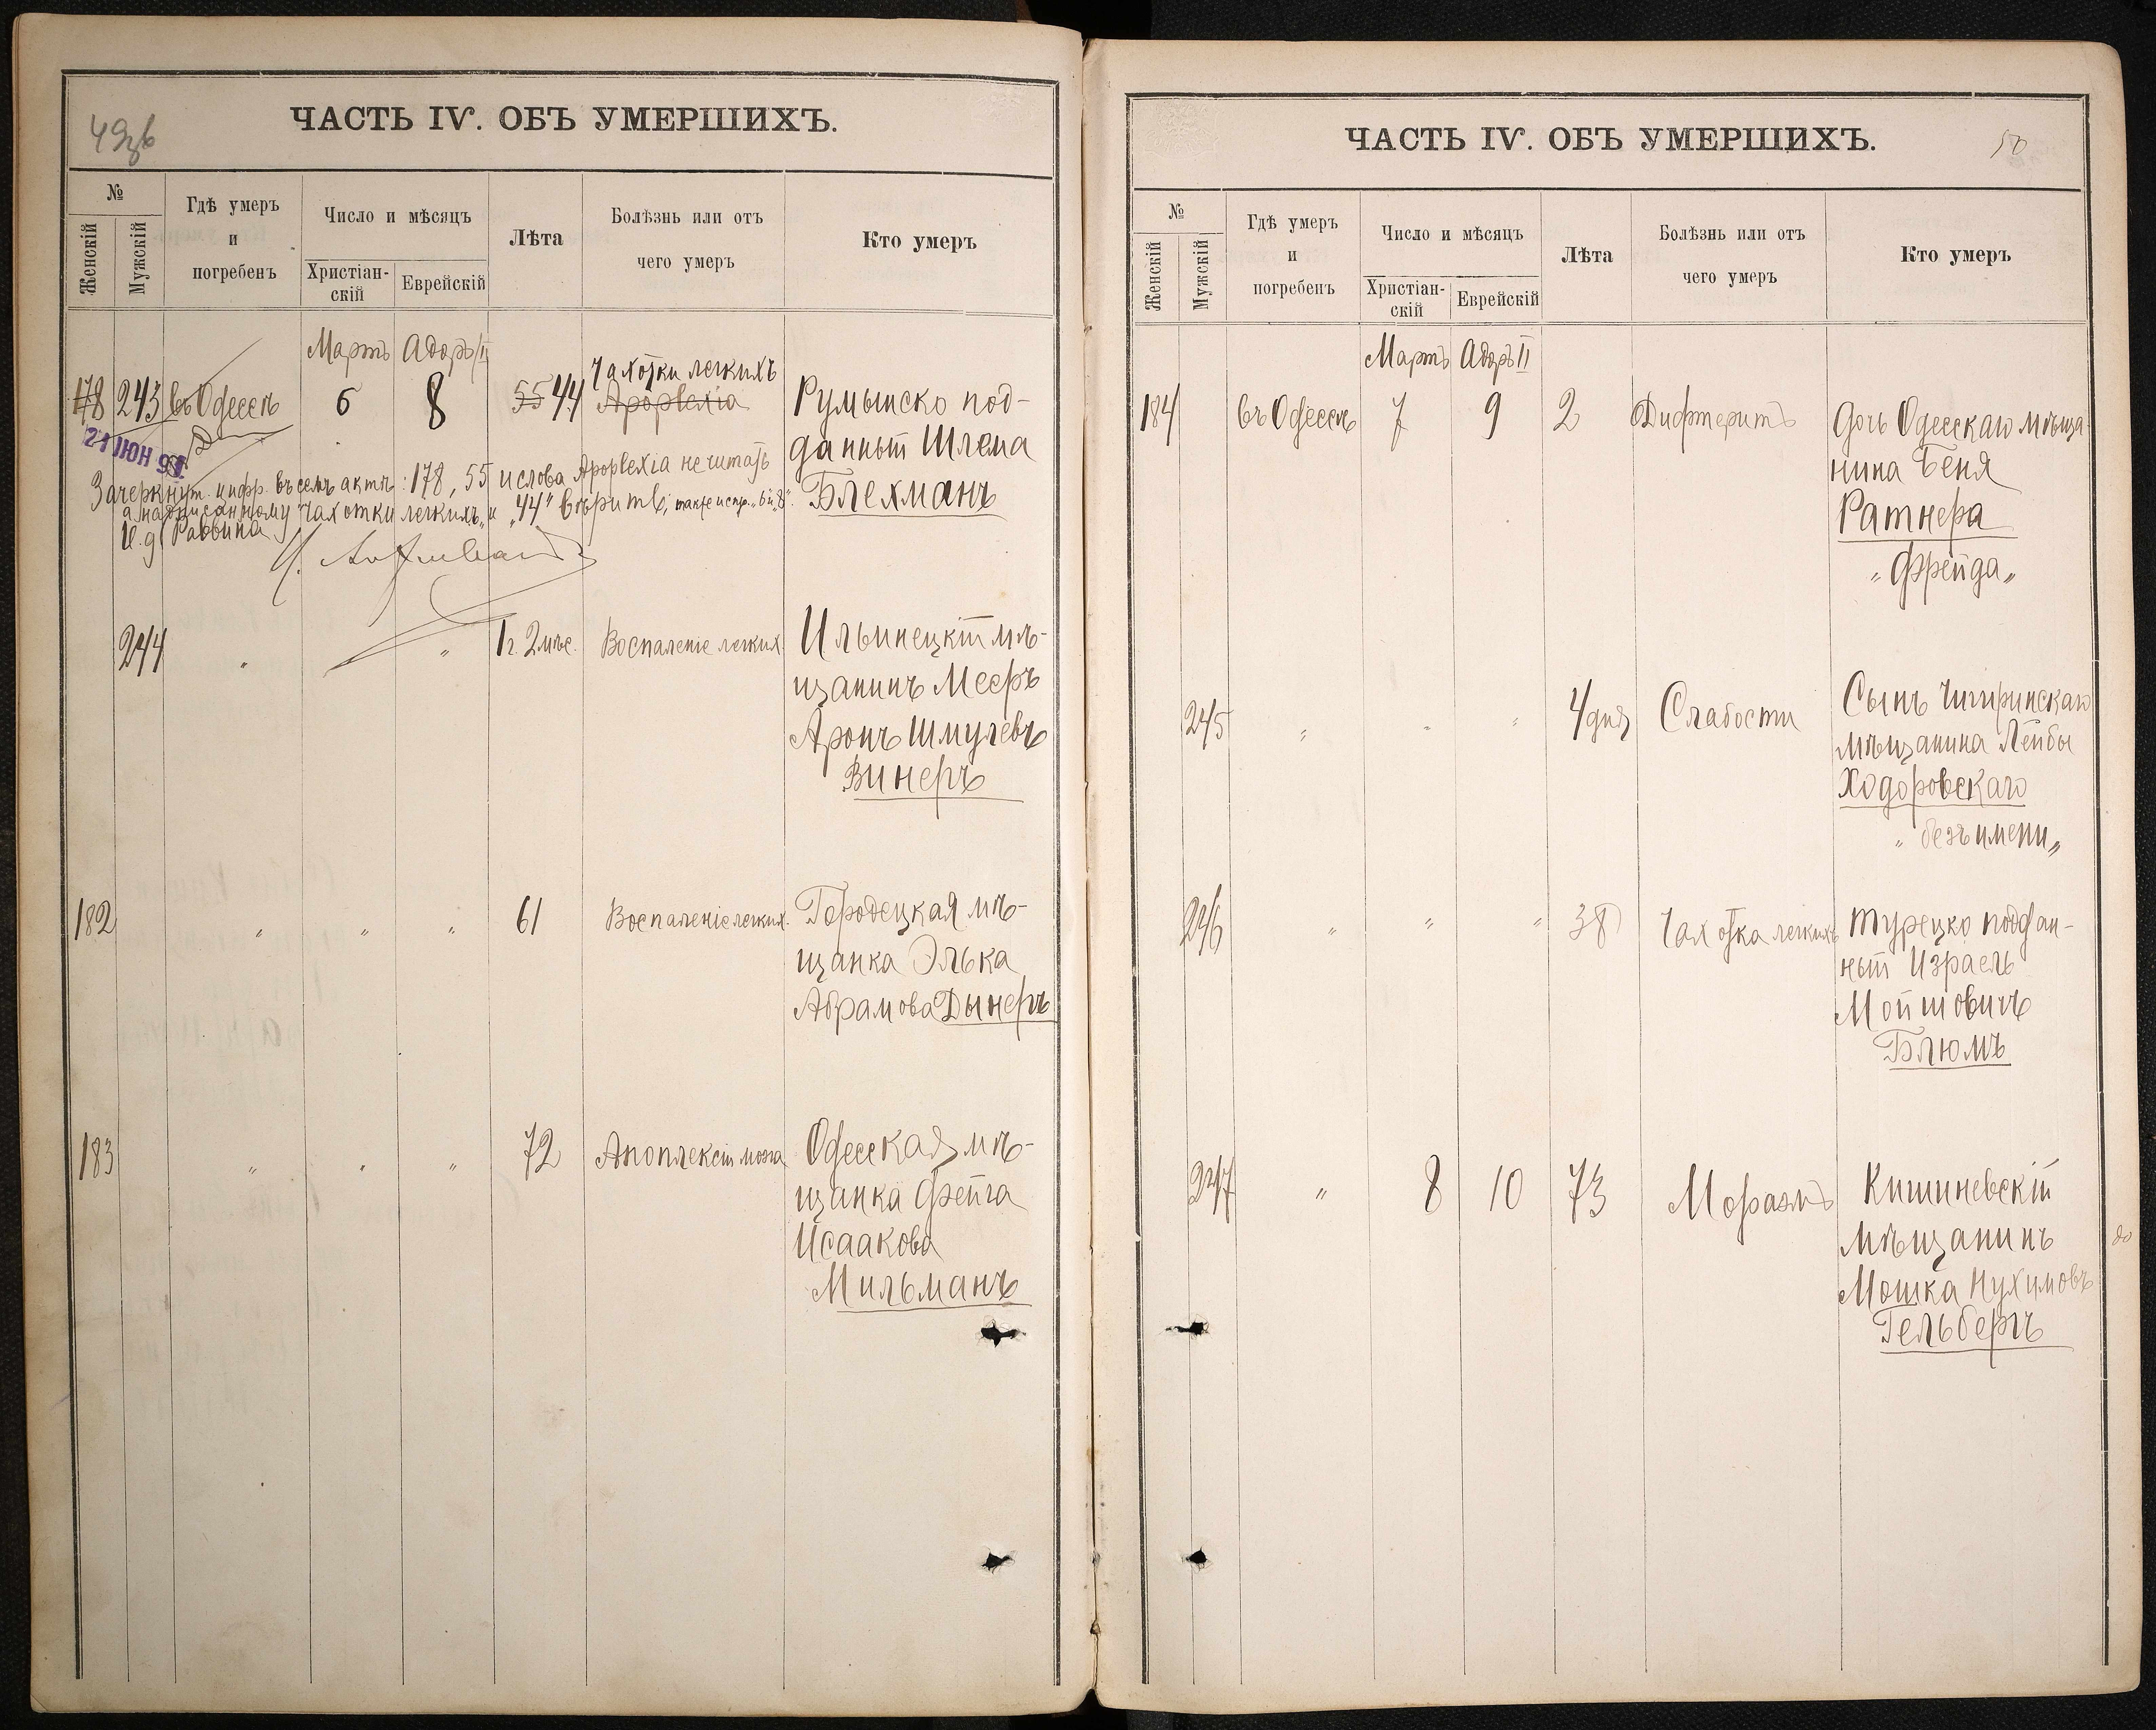 49об
ЧАСТЬ IV. ОБЪ УМЕРШИХЪ.
№
Женскій
Мужскій
Гдѣ умеръ
и
погребенъ
Число и мѣсяцъ
Христіан-
скій
Еврейскій
Лѣта
Болѣзнь или отъ
чего умеръ
Кто умеръ
Мартъ Адаръ II
Чахотки легкихъ
178 243 въ Одессѣ 6 8 55 44 Apoplexia Румынско под-
данный Шлема
Блехманъ
21 ЮН 9
Зачеркнут. цифр. въ семъ актѣ: 178, 55 и слова Apoplexia не читать
а надписанному Чахотки легкихъ" и "44" вѣрить, также испр. "6" и "8".
И. д. Раввина
244 " " 1 г. 2 мѣс. Воспаленіе легких. Ильинецкій мѣ-
щанинъ Мееръ
Аронъ Шмулевъ
Винеръ
182 " " " 61 Воспаленіе легких. Городецкая мѣ-
щанка Элька
Абрамова Дынеръ
183 " " " 72 Апоплексія мозга Одесская мѣ-
щанка Фейга
Исаакова
Мильманъ
ЧАСТЬ IV. ОБЪ УМЕРШИХЪ.
50
№
Женскій
Мужскій
Гдѣ умеръ
и
погребенъ
Число и мѣсяцъ
Христіан-
скій
Еврейскій
Лѣта
Болѣзнь или отъ
чего умеръ
Кто умеръ
Мартъ Адаръ II
184 въ Одессѣ 7 9 2 Дифтеритъ Дочь Одесскаго мѣща-
нина Беня
Ратнера
"Фрейда"
245 " " " 4 дня Слабости Сынъ Чигиринскаго
мѣщанина Лейбы
Ходоровскаго
"безъ имени"
246 " " " 38 Чахотка легкихъ Турецко поддан-
ный Израель
Мойшовичъ
Блюмъ
247 " 8 10 73 Моразмъ Кишиневскій
мѣщанинъ
Мошка Нухимовъ
Гельбергъ